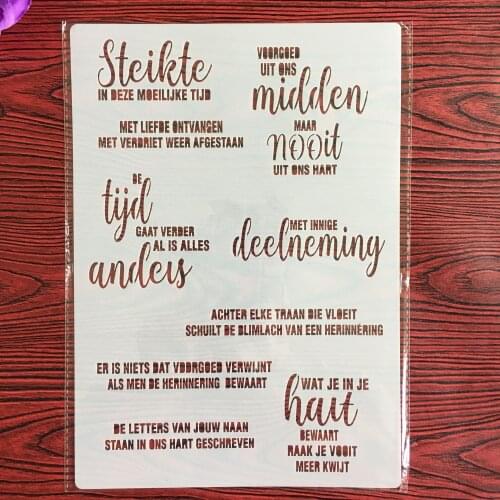 Steikte
IN DEZE MOEILIJKE TIJD
VOORGOED
UIT ONS
midden
MAAR
nooit
UIT ONS HART
MET LIEFDE ONTVANGEN
MET VERDRIET WEER AFGESTAAN
DE
tijd
GAAT VERDER
AL IS ALLES
anders
MET INNIGE
deelneming
ACHTER ELKE TRAAN DIE VLOEIT
SCHUILT DE BLIMLACH VAN EEN HERINNERING
ER IS NIETS DAT VOORGOED VERWIJNT
ALS MEN DE HERINNERING BEWAART
WAT JE IN JE
hait
BEWAART
RAAK JE VOOIT
MEER KWIJT
DE LETTERS VAN JOUW NAAN
STAAN IN ONS HART GESCHREVEN